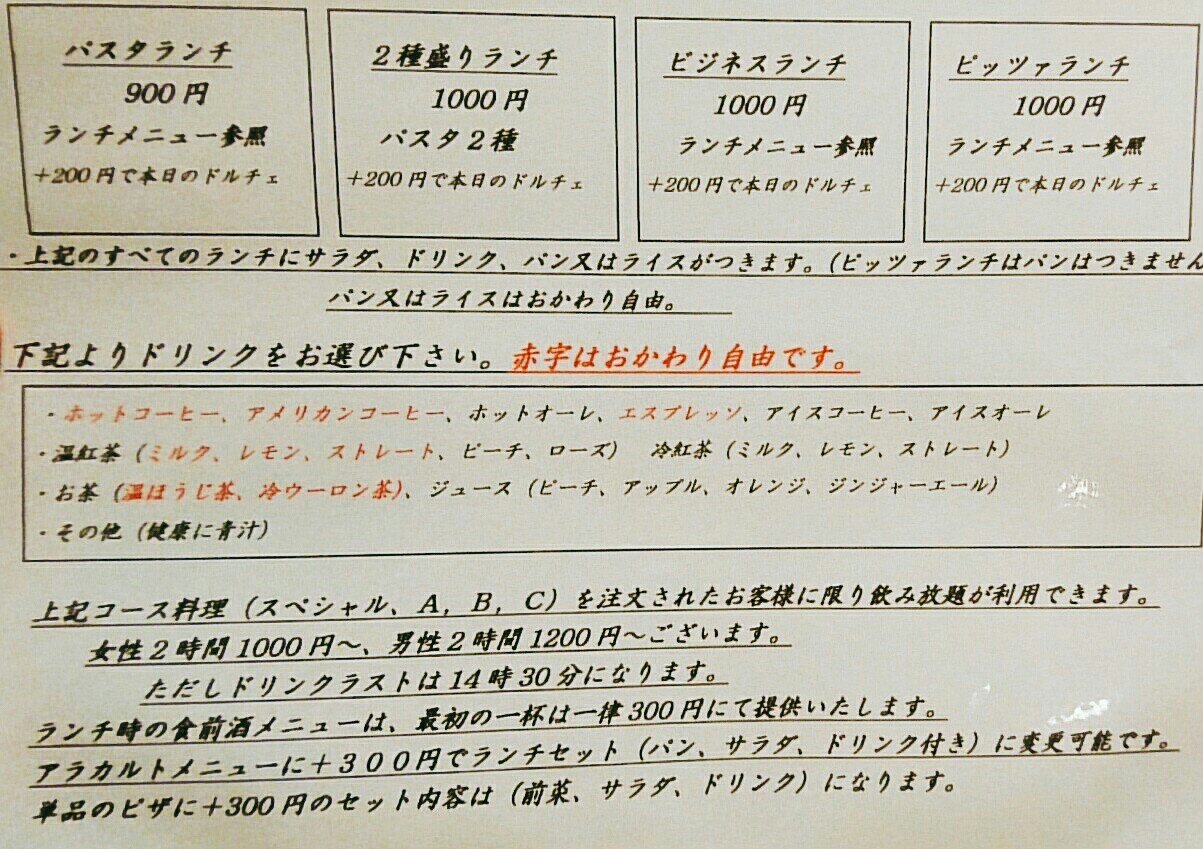 パスタランチ
900円
ランチメニュー参照
+200円で本日のドルチェ
2種盛りランチ
1000円
パスタ2種
+200円で本日のドルチェ
ビジネスランチ
1000円
ランチメニュー参照
+200円で本日のドルチェ
ピッツァランチ
1000円
ランチメニュー参照
+200円で本日のドルチェ
・上記のすべてのランチにサラダ、ドリンク、パン又はライスがつきます。(ピッツァランチはパンはつきません
パン又はライスはおかわり自由。
下記よりドリンクをお選び下さい。赤字はおかわり自由です。
・ホットコーヒー、アメリカンコーヒー、ホットオーレ、エスプレッソ、アイスコーヒー、アイスオーレ
・温紅茶(ミルク、レモン、ストレート、ピーチ、ローズ) 冷紅茶(ミルク、レモン、ストレート)
・お茶(温ほうじ茶、冷ウーロン茶)、ジュース(ピーチ、アップル、オレンジ、ジンジャーエール)
・その他(健康に青汁)
上記コース料理(スペシャル、A, B, C)を注文されたお客様に限り飲み放題が利用できます。
女性2時間1000円〜、男性2時間1200円〜ございます。
ただしドリンクラストは14時30分になります。
ランチ時の食前酒メニューは、最初の一杯は一律300円にて提供いたします。
アラカルトメニューに+300円でランチセット(パン、サラダ、ドリンク付き)に変更可能です。
単品のピザに+300円のセット内容は(前菜、サラダ、ドリンク)になります。